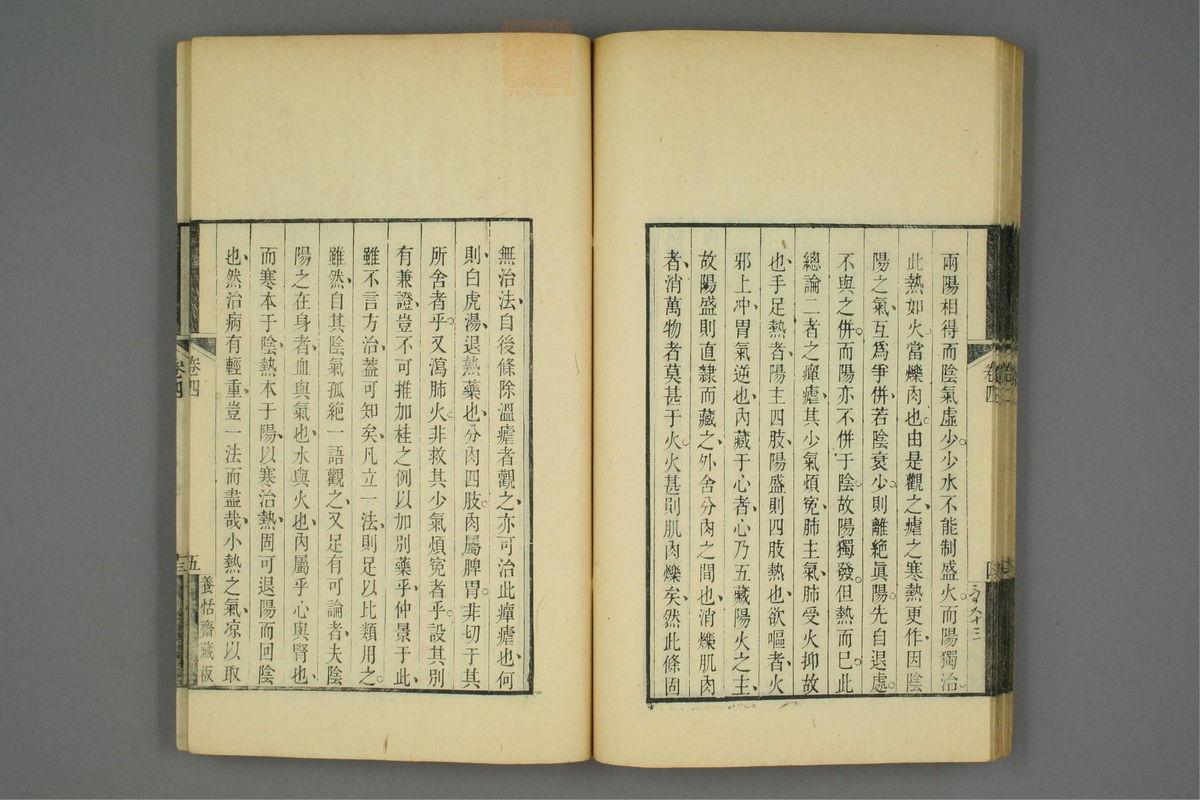 兩陽相得而陰氣虛少。少水不能制盛火。而陽獨治。
此熱如火。當爍肉也。由是觀之、瘧之寒熱更作、因陰
陽之氣、互爲爭併、若陰衰少、則離絶眞陽。先自退處。
不與之併。而陽亦不併于陰。故陽獨發。但熱而已。此
總論二者之癉瘧。其少氣煩寃、肺主氣、肺受火抑故
也、手足熱者、陽主四肢、陽盛則四肢熱也、欲嘔者、火
邪上冲、胃氣逆也、內藏于心者、心乃五藏陽火之主、
故陽盛則直隸而藏之、外舍分肉之間也、消爍肌肉
者、消萬物者莫甚于火。火甚則肌肉爍矣、然此條固
卷四
無治法、自後條除溫瘧者觀之、亦可治此癉瘧也、何
則、白虎湯、退熱藥也、分肉四肢。肉屬脾胃。非切于其
所舍者乎。又瀉肺火。非救其少氣煩寃者乎。設其別
有兼證、豈不可推加桂之例以加別藥乎、仲景于此、
雖不言方、治蓋可知矣、凡立一法、則足以比類用之。
雖然、自其陰氣孤絶一語觀之、又足有可論者、夫陰
陽之在身者、血與氣也、水與火也、內屬乎心與腎也、
而寒本于陰、熱本于陽、以寒治熱、固可退陽而回陰
也、然治病有輕重、豈一法而盡哉、小熱之氣、凉以取
卷四
五
養恬齋藏板
卷四